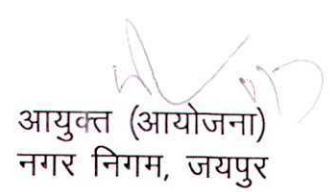 आयुक्त (आयोजना)
नगर निगम, जयपुर